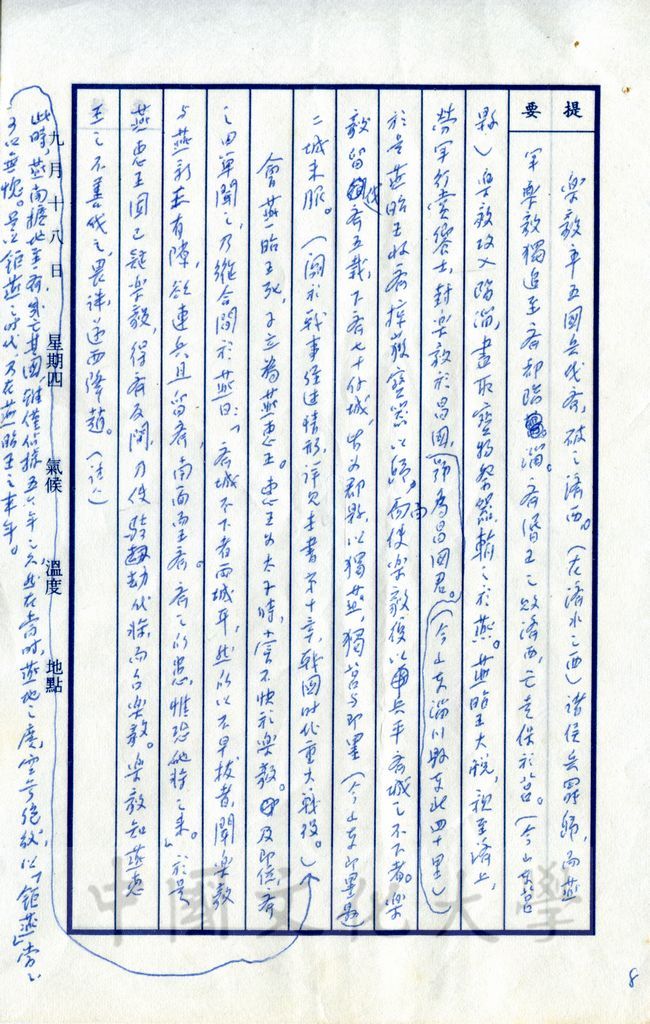 提要
樂毅率五國兵伐齊,破之濟西。(在濟水之西)諸侯兵罷歸,而燕
軍樂毅獨追至齊都臨淄。齊湣王之敗濟西,亡走保於莒。(今山東莒
縣)樂毅攻入臨淄,盡取寶物祭器輸之於燕。燕昭王大悅,親至濟上,
勞軍行賞饗士,封樂毅於昌國,號為昌國君。(今山東淄川縣東北四十里)
於是燕昭王收齊擄獲寶器以歸。而使樂毅復以兵平齊城之不下者。樂
毅留伐齊五載,下齊七十餘城,皆為郡縣以獨燕,獨莒與即墨(今山東即墨縣
二城未服。(關於戰事經過情形,詳見本書第十章,戰國時代重大戰役。)
會燕昭王死,子立為燕惠王。惠王為太子時,嘗不快於樂毅。及即位,齊
之田單聞之,乃縱合間於燕曰:「齊城不下者兩城耳,然所以不早拔者,聞樂毅
與燕新王有隙,欲連兵且留齊,南面而王齊。齊之所患,惟恐他將之來」。於是
燕惠王固已疑樂毅,得齊反間,乃使騎劫代將而召樂毅。樂毅知燕惠
王之不善代之,畏誅,遂西降趙。(註八)
九月十八日 星期四 氣候 溫度 地點
此時,燕南疆地至齊,幾亡其國,雖僅佔據五六年之久,然在當時,燕地之廣,空前絕後,以「鉅燕」當之
可以無愧。是以鉅燕之時代,乃在燕昭王之末年。
8
中國文化大學